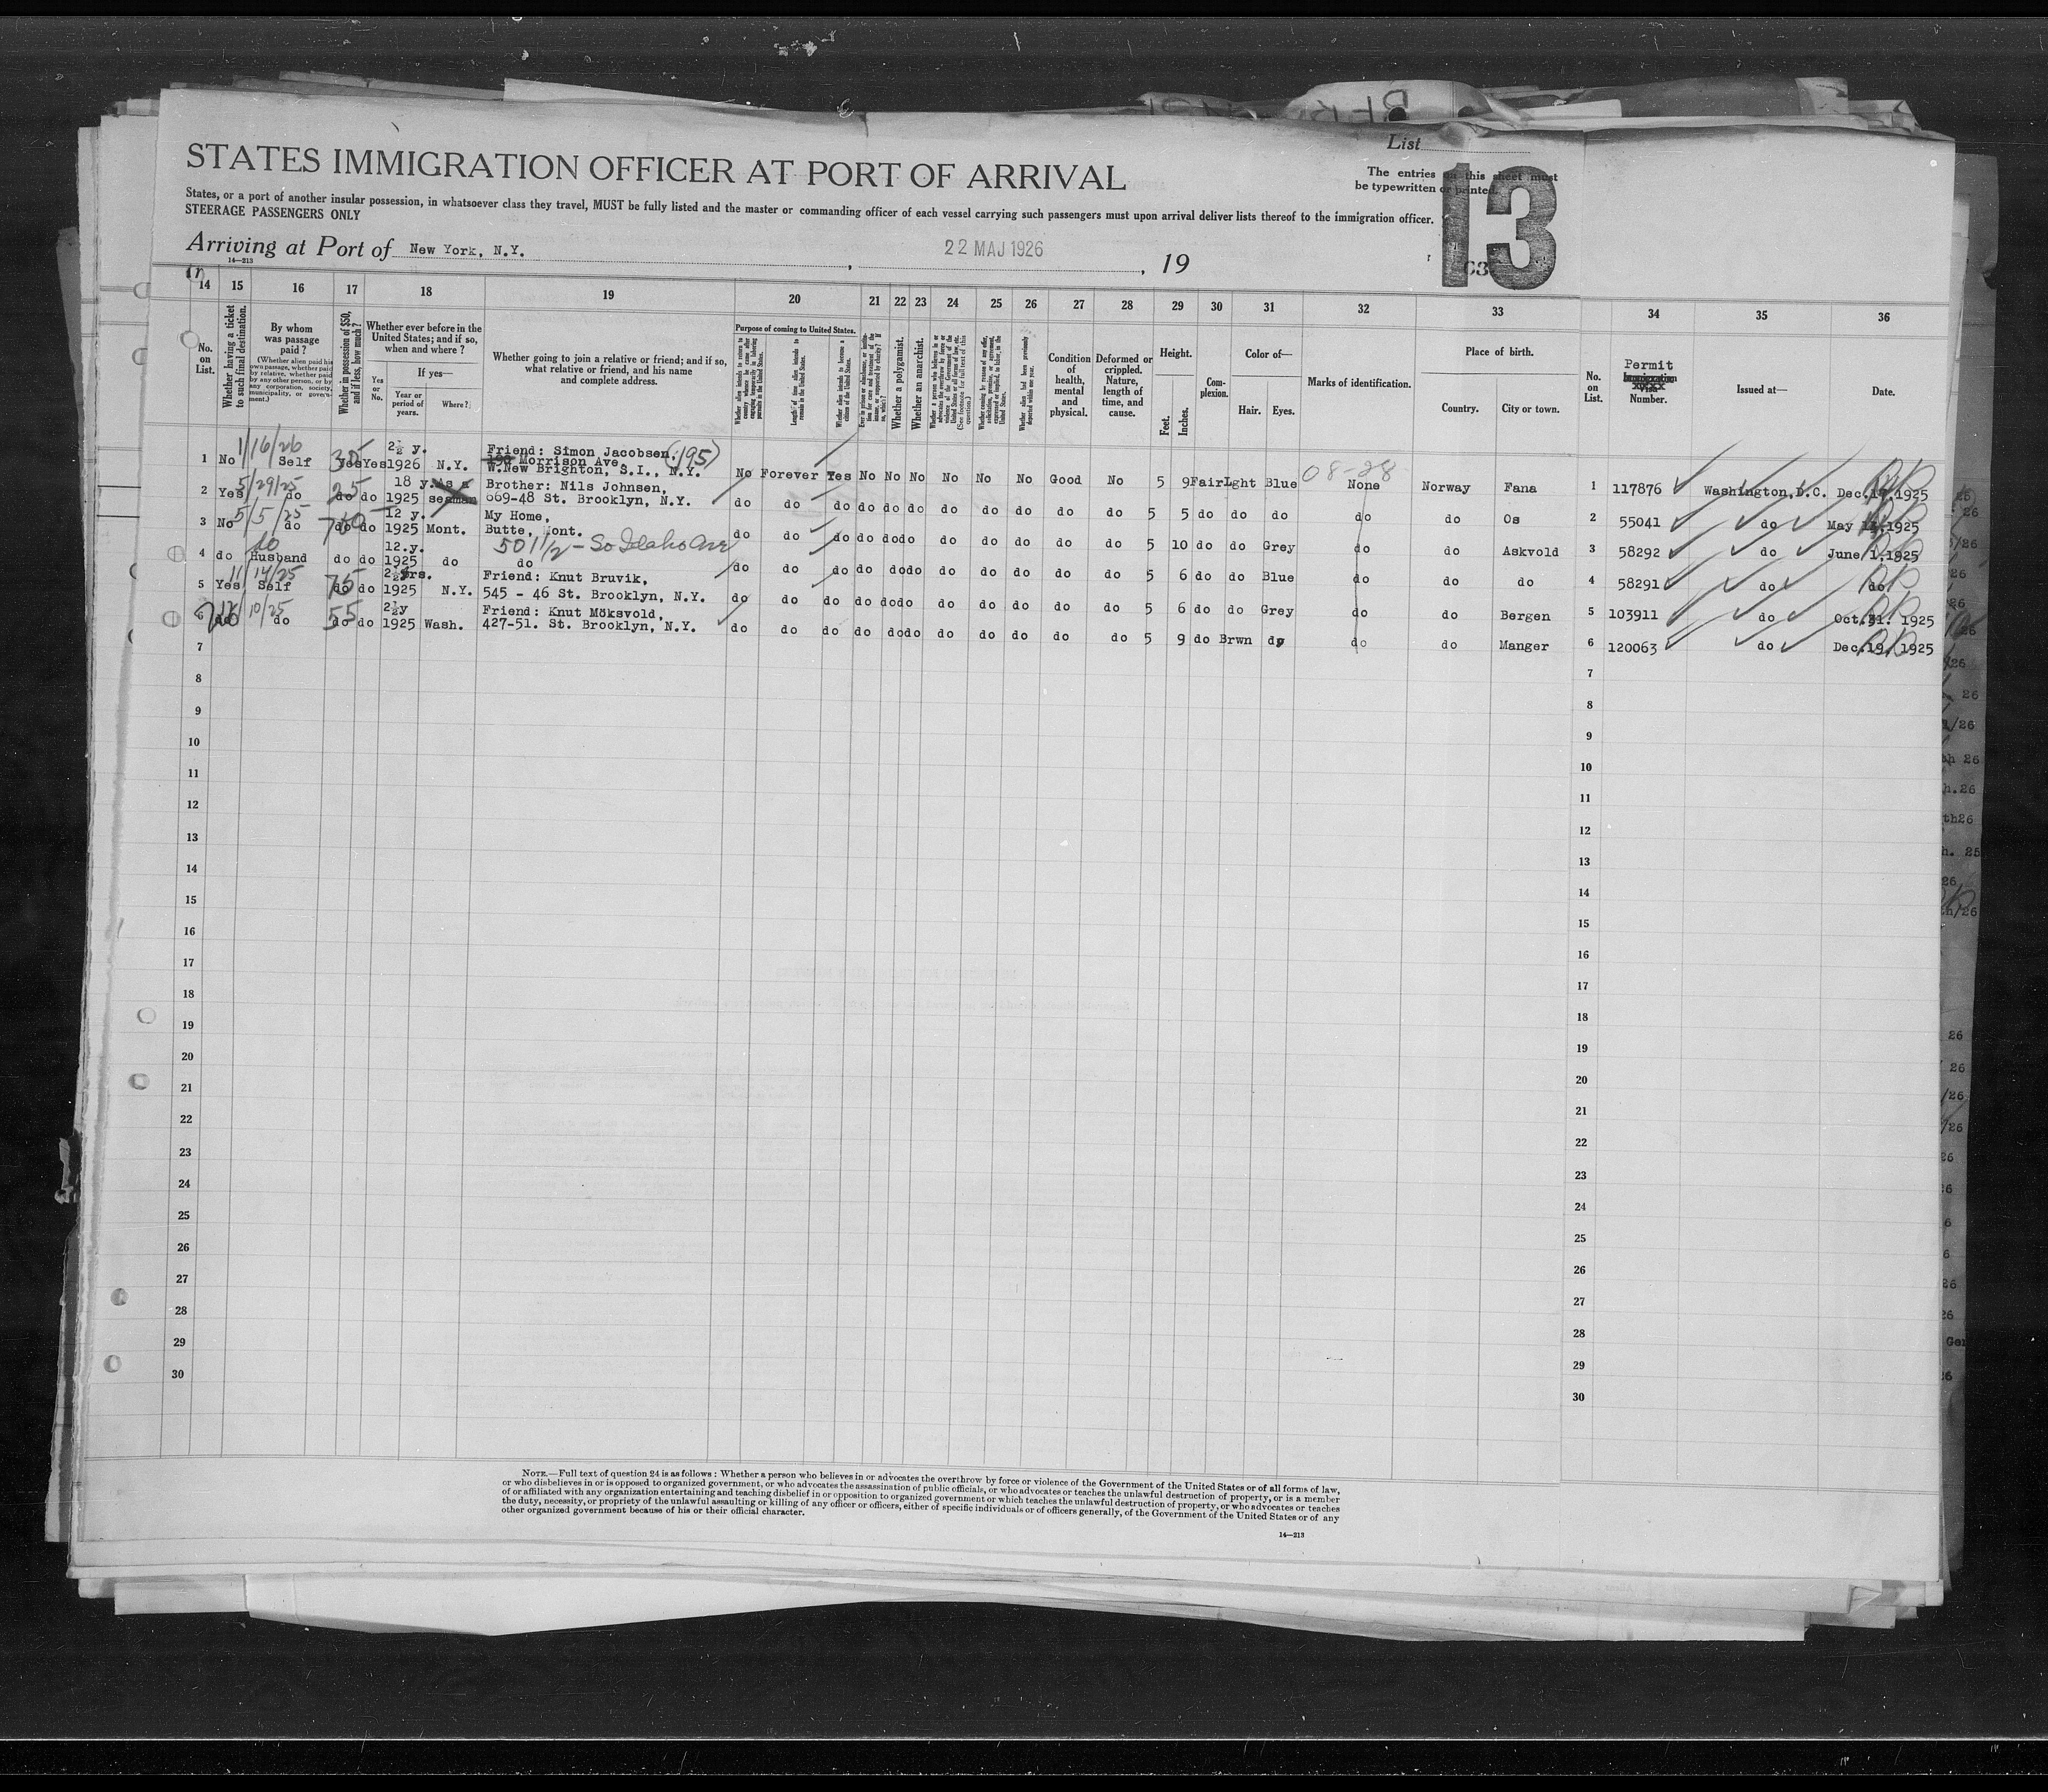 List
STATES IMMIGRATION OFFICER AT PORT OF ARRIVAL
The entries on this sheet must
be typewritten or printed.
13
States, or a port of another insular possession, in whatsoever class they travel, MUST be fully listed and the master or commanding officer of each vessel carrying such passengers must upon arrival deliver lists thereof to the immigration officer.
STEERAGE PASSENGERS ONLY
Arriving at Port of New York, N.Y. , 22 MAJ 1926 , 19
14—213
14 15 16 17 18 19 20 21 22 23 24 25 26 27 28 29 30 31 32 33 34 35 36
No. on List.
Whether having a ticket to such final destination.
By whom was passage paid?
(Whether alien paid his own passage, whether paid by relative, whether paid by any other person, or by any corporation, society, municipality, or government.)
Whether in possession of $50, and if less, how much?
Whether ever before in the United States; and if so, when and where?
Yes or No.
If yes—
Year or period of years.
Where?
Whether going to join a relative or friend; and if so, what relative or friend, and his name and complete address.
Purpose of coming to United States.
Length of time alien intends to remain in the United States.
Whether alien intends to become a citizen of the United States.
Whether a polygamist.
Whether an anarchist.
Condition of health, mental and physical.
Deformed or crippled. Nature, length of time, and cause.
Height.
Feet.
Inches.
Complexion.
Color of—
Hair.
Eyes.
Marks of identification.
Place of birth.
Country.
City or town.
No. on List.
Permit
Number.
Issued at—
Date.
1/16/26 30 2½ y. Friend: Simon Jacobsen, (195)
Morrison Ave,
1 No Self Yes Yes 1926 N.Y. W.New Brighton, S.I., N.Y. No Forever Yes No No No No No No Good No 5 9 Fair Lght Blue None Norway Fana 1 117876 Washington,D.C. Dec.17,1925
08-28
5/29/25 25 18 y. As a Brother: Nils Johnsen,
2 Yes do do do 1925 seaman 669-48 St. Brooklyn, N.Y. do do do do do do do do do do do 5 5 do do do do do Os 2 55041 do May 13,1925
5/5/25 12 y. My Home,
3 No do do do 1925 Mont. Butte, Mont. do do do do do do do do do do do 5 10 do do Grey do do Askvold 3 58292 do June 1.1925
12.y. 501 1/2 - So Idaho Ave
4 do Husband do do 1925 do do do do do do do do do do do do do 5 6 do do Blue do do do 4 58291 do do
11/14/25 75 2½yrs. Friend: Knut Bruvik,
5 Yes Self do do 1925 N.Y. 545 - 46 St. Brooklyn, N.Y. do do do do do do do do do do do 5 6 do do Grey do do Bergen 5 103911 do Oct.31. 1925
10/25 55 2½y Friend: Knut Möksvold,
6 do do do do 1925 Wash. 427-51. St. Brooklyn, N.Y. do do do do do do do do do do do 5 9 do Brwn do do do Manger 6 120063 do Dec.19, 1925
7 7
8 8
9 9
10 10
11 11
12 12
13 13
14 14
15 15
16 16
17 17
18 18
19 19
20 20
21 21
22 22
23 23
24 24
25 25
26 26
27 27
28 28
29 29
30 30
NOTE.—Full text of question 24 is as follows: Whether a person who believes in or advocates the overthrow by force or violence of the Government of the United States or of all forms of law,
or who disbelieves in or is opposed to organized government, or who advocates the assassination of public officials, or who advocates or teaches the unlawful destruction of property, or is a member
of or affiliated with any organization entertaining and teaching disbelief in or opposition to organized government or which teaches the unlawful destruction of property, or who advocates or teaches
the duty, necessity, or propriety of the unlawful assaulting or killing of any officer or officers, either of specific individuals or of officers generally, of the Government of the United States or of any
other organized government because of his or their official character.
14—213